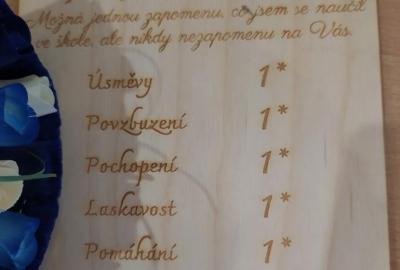 Možná jednou zapomenu, co jsem se naučil
ve škole, ale nikdy nezapomenu na Vás.
Úsměvy 1*
Povzbuzení 1*
Pochopení 1*
Laskavost 1*
Pomáhání 1*